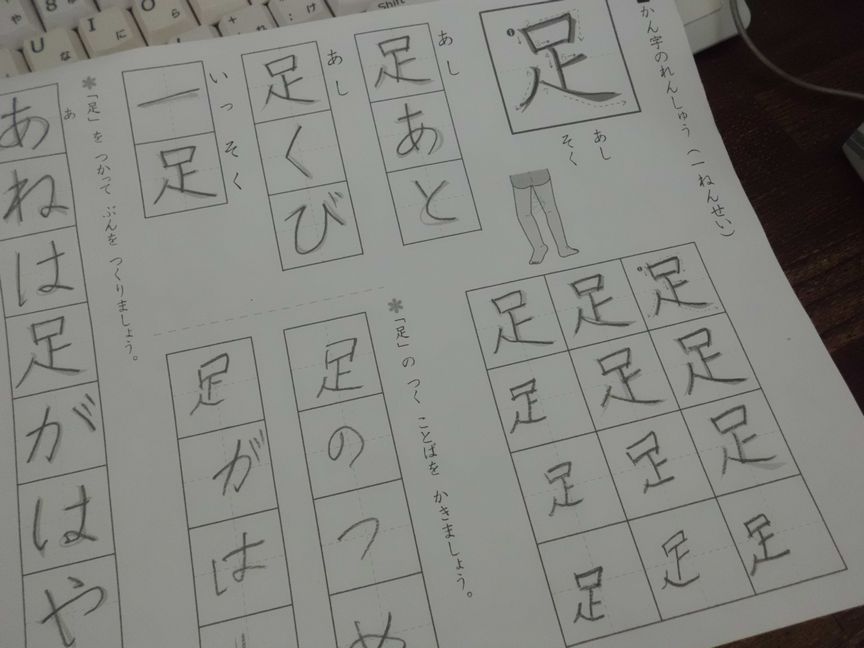 かん字のれんしゅう（一ねんせい）
足
あし
そく
足足足
足足足
足足足
足足足
あし
足あと
あし
足くび
いっそく
一足
＊「足」の つく ことばを かきましょう。
足のつめ
足がは
＊「足」を つかって ぶんを つくりましょう。
あ
あねは足がはや
U
な
I
に
O
ら
Shift